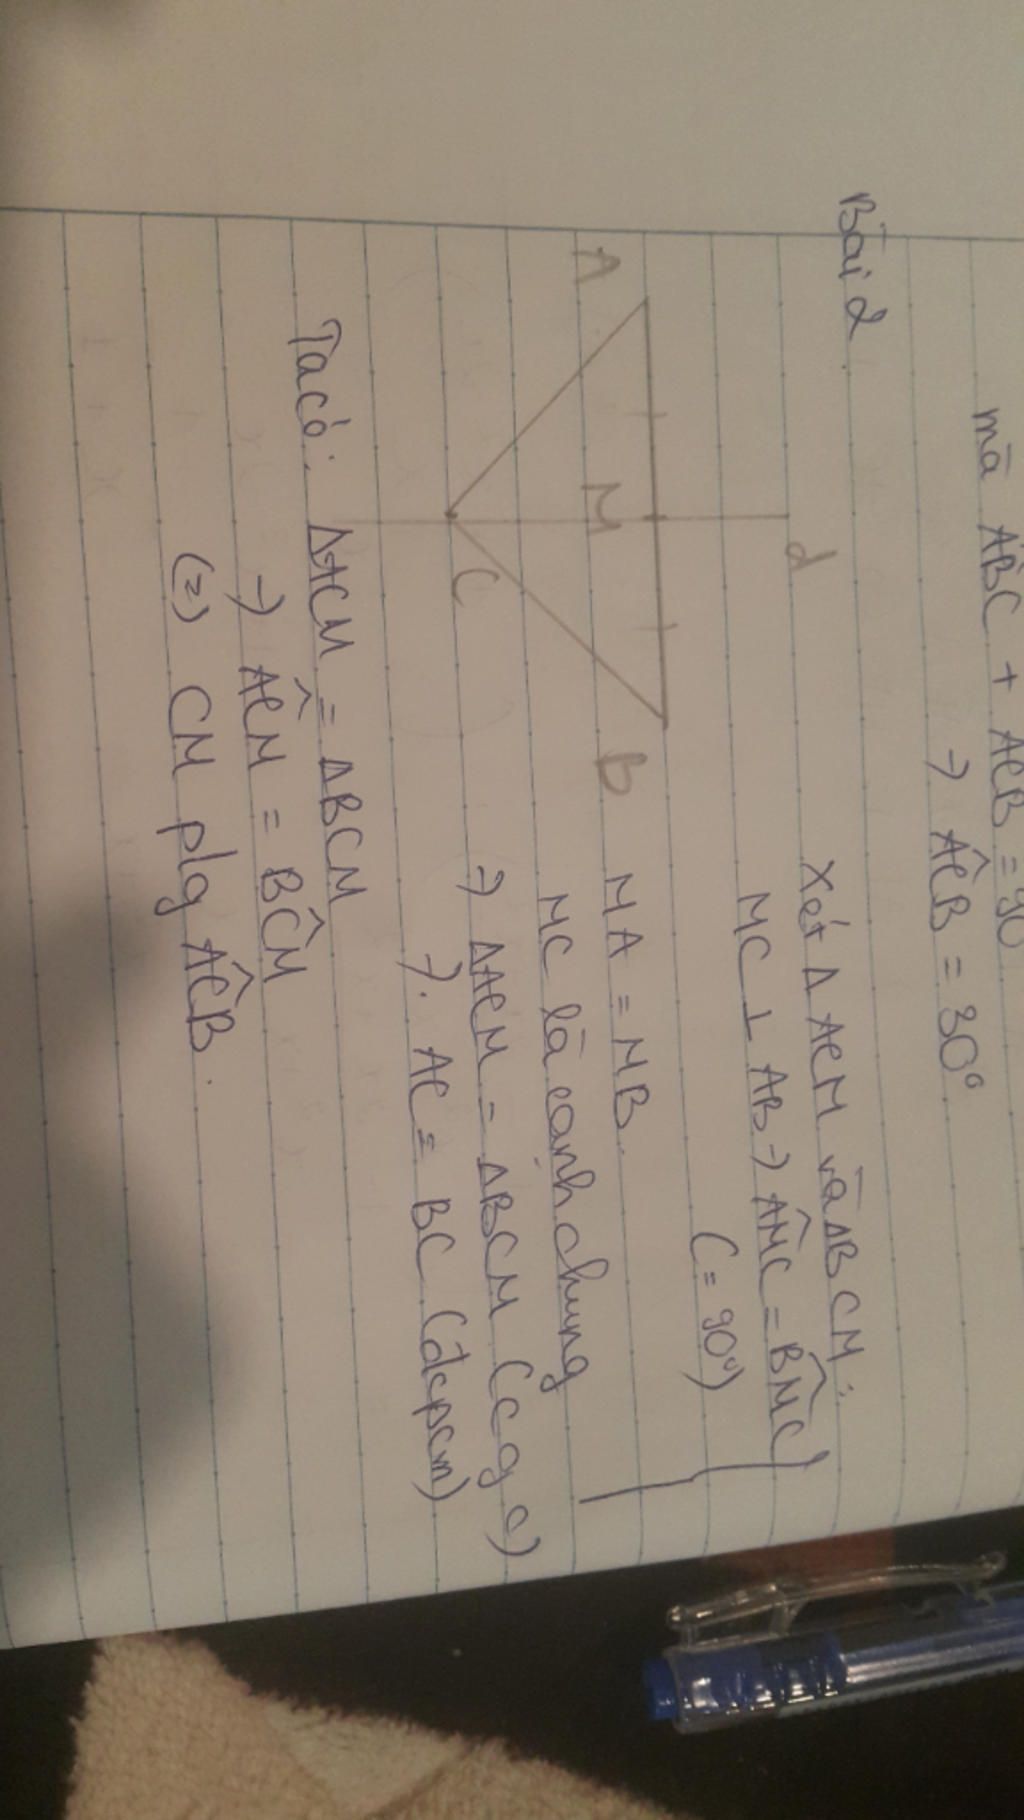 mà ABC + ACB = 90
→ AĈB = 30°
Bài 2
d
A
M
B
C
Xét Δ ACM và ΔBCM:
MC ⊥ AB → AM̂C = BM̂C
(= 90°)
MA = MB.
MC là cạnh chung
→ ΔACM = ΔBCM (c g c)
→. AC = BC (đcpcm)
Ta có: ΔACM = ΔBCM
→ AĈM = BĈM
(=) CM plg AĈB.